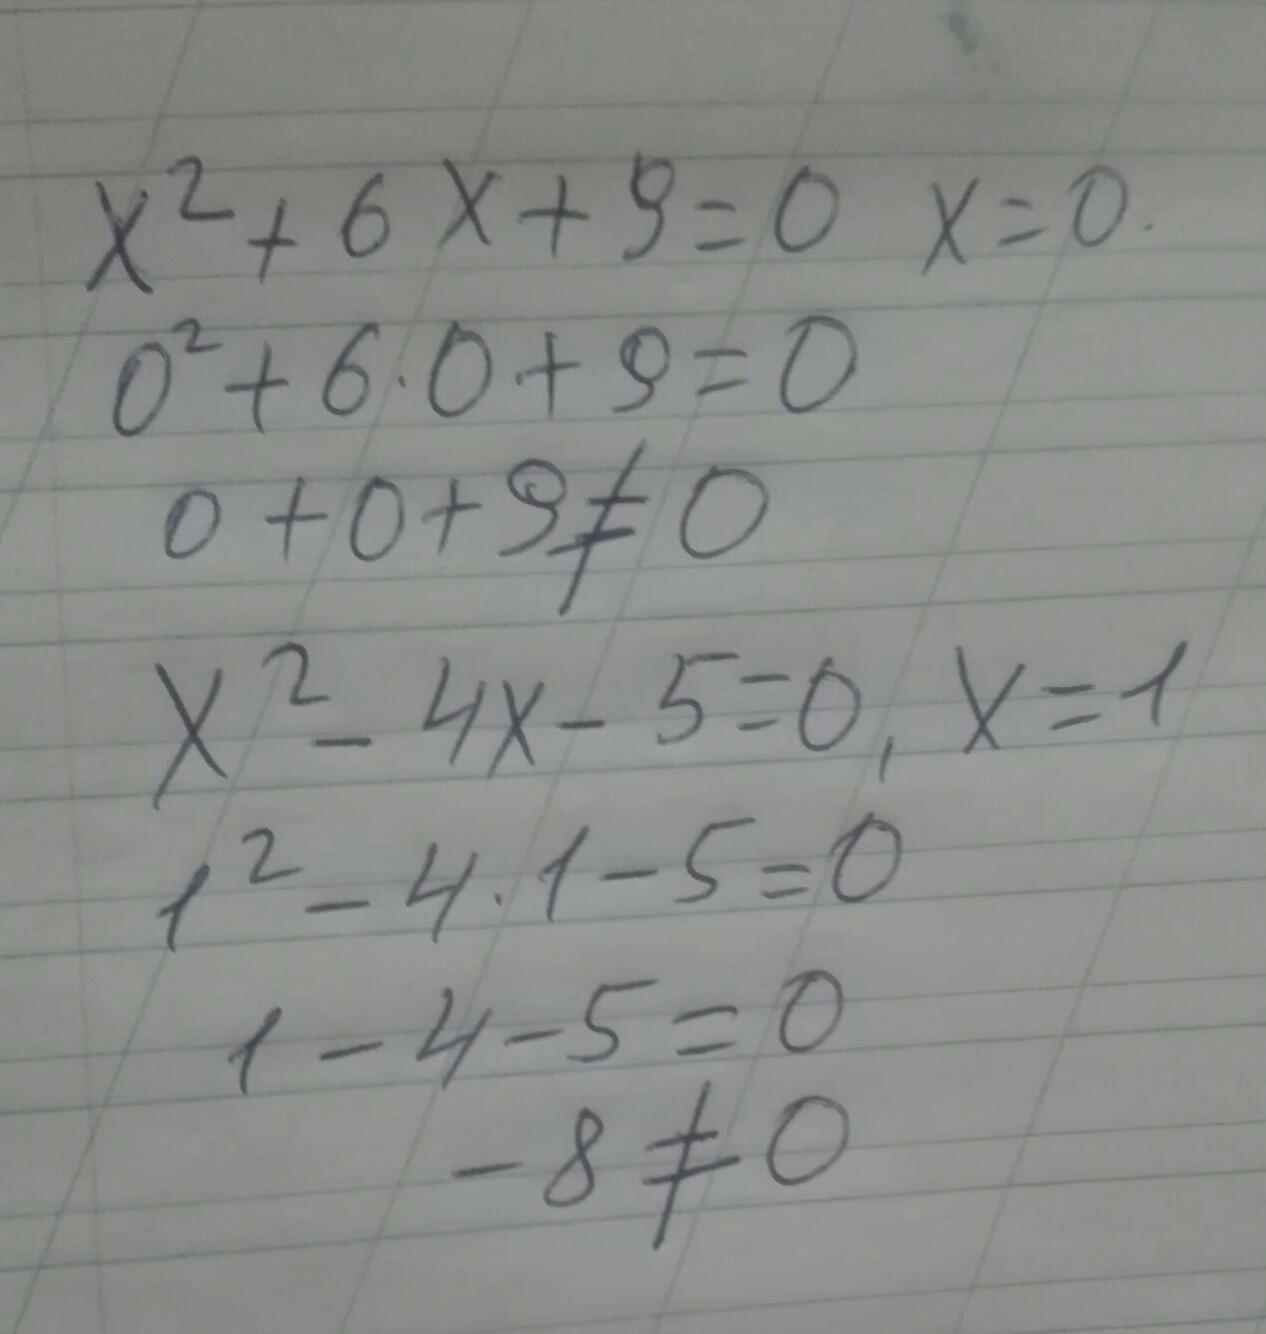 x² + 6x + 9 = 0 x = 0.
0² + 6 · 0 + 9 = 0
0 + 0 + 9 ≠ 0
x² - 4x - 5 = 0, x = 1
1² - 4 · 1 - 5 = 0
1 - 4 - 5 = 0
- 8 ≠ 0